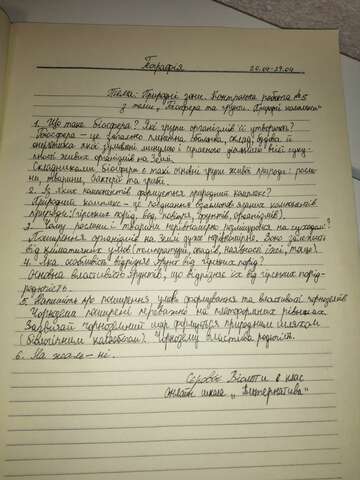 Географія
20.04-27.04
Тема: Природні зони. Контрольна робота №5
з теми „Біосфера та ґрунти. Природні комплекси"
1. Що таке біосфера? Які групи організмів її утворюють?
Біосфера – це загально планетна оболонка, склад, будова й
енергетика якої зумовлені минулою і сучасною діяльністю всієї суку-
пності живих організмів на Землі.
Складниками біосфери є такі основні групи живої природи: росли-
ни, тварини, бактерії та гриби.
2. Із яких компонентів формується природний комплекс?
Природний комплекс – це поєднання взаємопов'язаних компонентів
природи (гірських порід, вод, повітря, ґрунтів, організмів).
3. Чому рослини і тварини нерівномірно розміщуються на суходолі?
Поширення організмів на Землі дуже нерівномірне. Воно залежить
від кліматичних умов (температури, опадів, наявності їжі, тощо).
4. Яка особливість відрізняє ґрунт від гірських порід?
Основна властивість ґрунтів, що відрізняє їх від гірських порід-
родючість.
5. Напишіть про поширення, умови формування та властивості чорноземів
Чорноземи поширені переважно на платформних рівнинах.
Зазвичай чорноземний шар формується природним шляхом
(біологічним). Чорнозему властива родючість.
6. На жаль – ні.
Віолети 6 клас
Онлайн школа „Альтернатива"